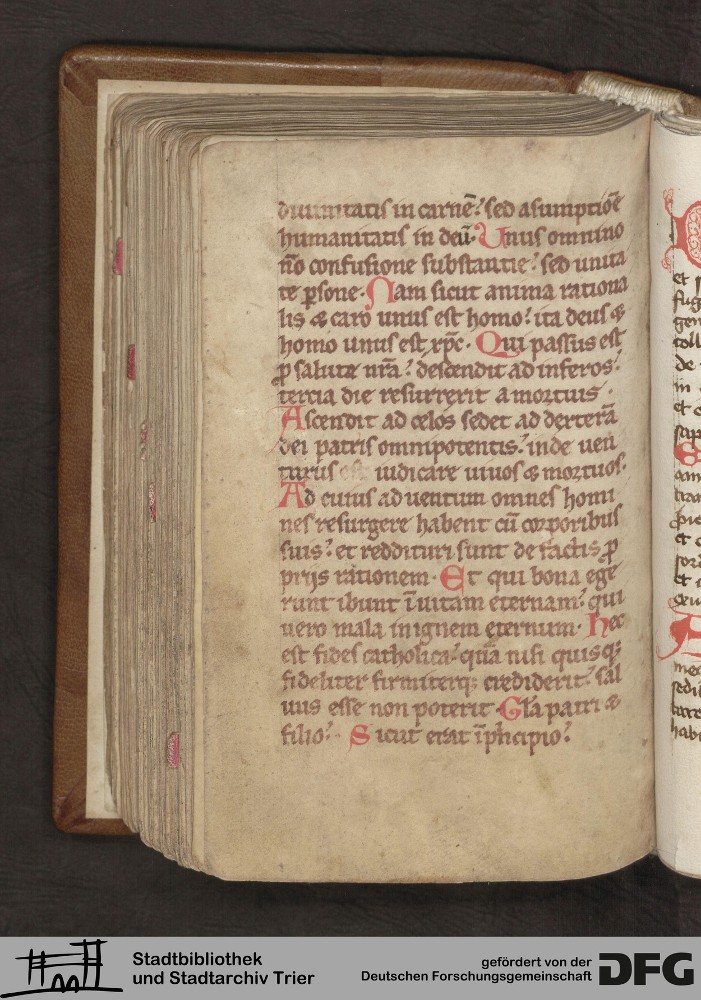 diuinitatis in carnē? sed asumptiōe
humanitatis in deū. Unus omnino
nō confusione substantie? sed unita
te ꝑsone. Nam sicut anima rationa
lis & caro unus est homo? ita deus &
homo unus est xp̄c. Qui passus est
ꝓ salute nr̄a? descendit ad inferos?
tercia die resurrexit a mortuis.
Ascendit ad celos sedet ad dexterā
dei patris omnipotentis? inde uen
turus est iudicare uiuos & mortuos.
Ad cuius aduentum omnes homi
nes resurgere habent cū corporibus
suis? et reddituri sunt de factis ꝓ
priis rationem. Et qui bona ege
runt ibunt ī uitam eternam? qui
uero mala in ignem eternum. Hec
est fides catholica? quā nisi quisqꝫ
fideliter firmiterqꝫ crediderit? sal
uus esse non poterit. Gl̄a patri &
filio? Sicut erat ī pͥncipio?
et
fug
gen
toll
de
in
et
Stadtbibliothek
und Stadtarchiv Trier
gefördert von der
Deutschen Forschungsgemeinschaft
DFG